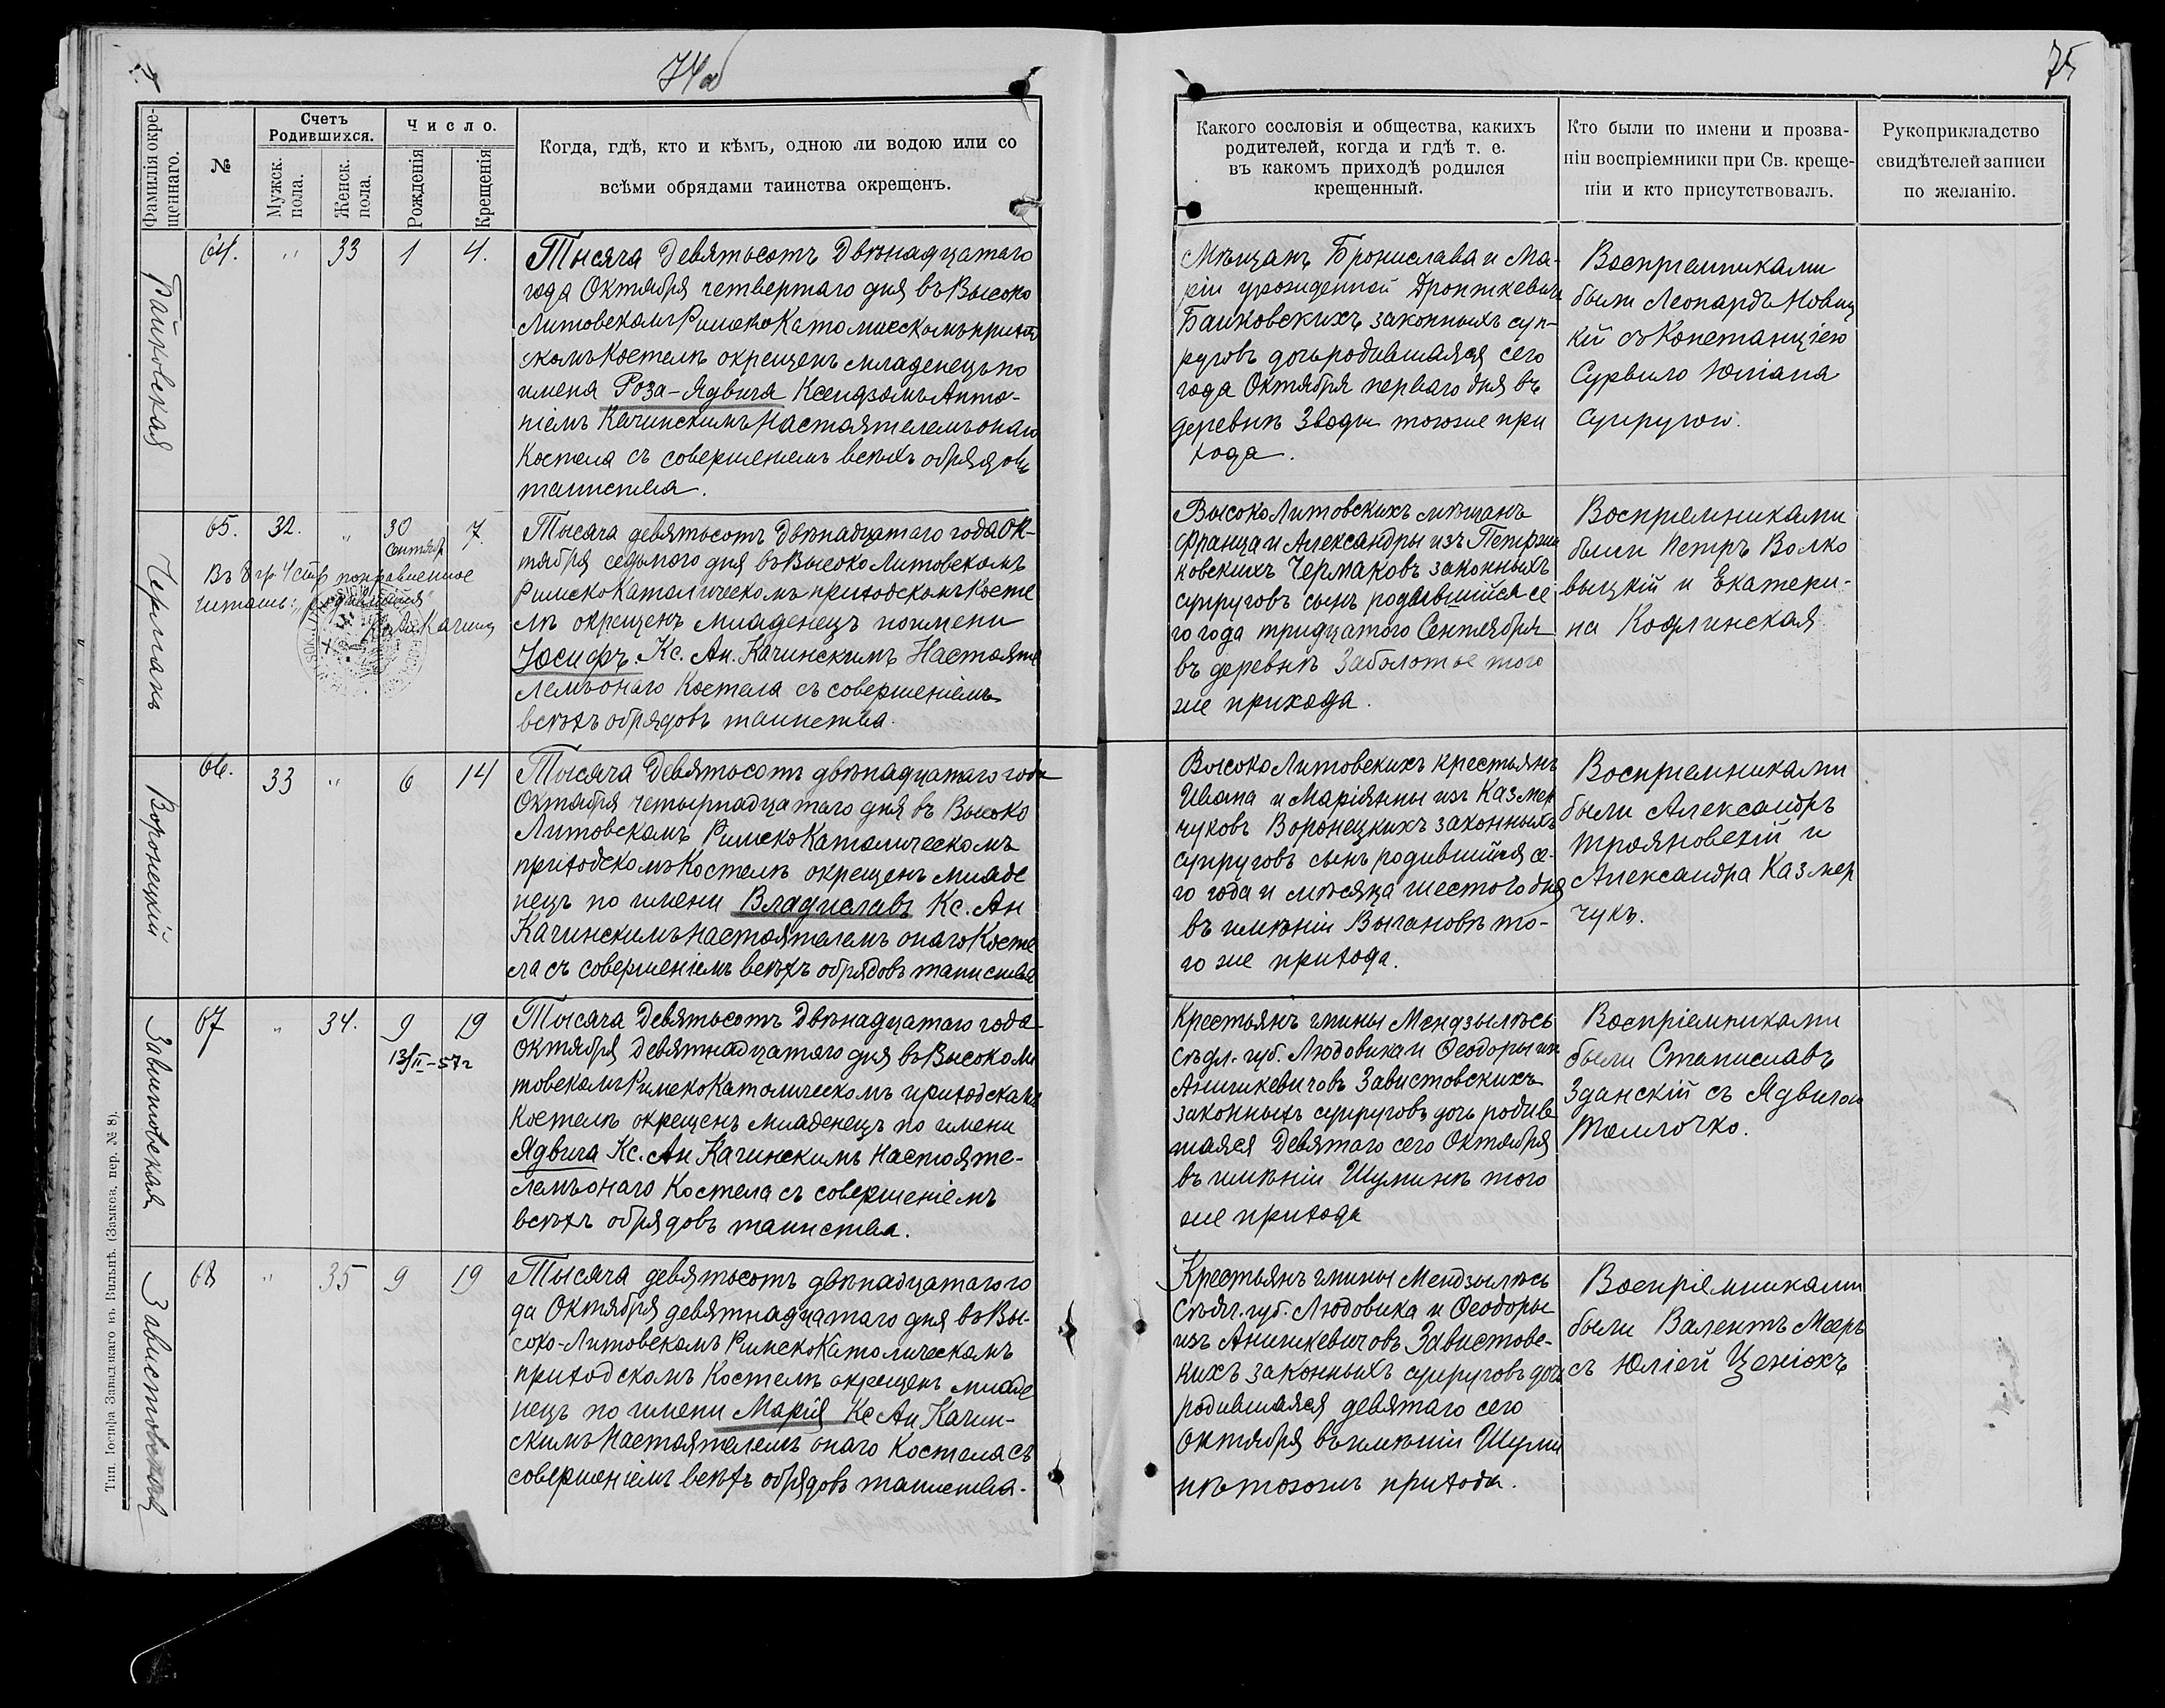 74об
75
Фамилія окре-
щеннаго.
№
Счетъ
Родившихся.
Мужск.
пола.
Женск.
пола.
Число.
Рожденія
Крещенія
Когда, гдѣ, кто и кѣмъ, одною ли водою или со
всѣми обрядами таинства окрещенъ.
Какого сословія и общества, какихъ
родителей, когда и гдѣ т. е.
въ какомъ приходѣ родился
крещенный.
Кто были по имени и прозва-
ніи воспріемники при Св. креще-
ніи и кто присутствовалъ.
Рукоприкладство
свидѣтелей записи
по желанію.
Байковская
64. " 33 1 4.
Тысяча Девятьсотъ Двѣнадцатаго
года Октября четвертаго дня въ Высоко
Литовскомъ Римско Католическомъ приход
скомъ Костелѣ окрещенъ младенецъ по
имена Роза-Ядвига Ксендзомъ Анто-
ніемъ Качинскимъ Настоятелемъ онаго
Костела съ совершеніемъ всѣхъ обрядовъ
таинства.
Мѣщанъ Бронислава и Ма-
ріи урожденной
Байковскихъ законныхъ суп-
руговъ дочь родившаяся сего
года Октября перваго дня въ
деревнѣ Зводы тогоже при
хода.
Воспріемниками
были Леонардъ Новиц
кій съ Констанціею
Сурвило Юліана
супругою.
Чермакъ
65. 32. " 30 7.
Сентября
Въ 8 гр 4 стр поправленное
читать: "родившійся"
Кс Ан Качинс
Тысяча девятьсотъ Двѣнадцатаго года Ок-
тября седьмого дня въ Высоко Литовскомъ
Римско Католическомъ приходскомъ Косте
лѣ окрещенъ младенецъ по имени
Іосифъ. Кс. Ан. Качинскимъ Настояте
лемъ онаго Костела съ совершеніемъ
всѣхъ обрядовъ таинства.
Высоко Литовскихъ мѣщанъ
Франца и Александры изъ
ковскихъ Чермаковъ законныхъ
супруговъ сынъ родившійся се
го года тридцатого Сентября
въ деревнѣ Заболотье того
же прихода.
Воспріемниками
были Петръ Волко
выцкій и Екатери-
на Козлинская
Воронецкій
66. 33 " 6 14
Тысяча Девятьсотъ двѣнадцатаго года
Октября четырнадцатаго дня въ Высоко
Литовскомъ Римско Католическомъ
приходскомъ Костелѣ окрещенъ младе
нецъ по имени Владиславъ Кс. Ан
Качинскимъ Настоятелемъ онаго Косте
ла съ совершеніемъ всѣхъ обрядовъ таинства
Высоко Литовскихъ крестьянъ
Ивана и Маріянны изъ Казмер
чуковъ Воронецкихъ законныхъ
супруговъ сынъ родившійся се-
го года и мѣсяца шестого дня
въ имѣніи Выгановѣ то-
го же прихода.
Воспріемниками
были Александръ
Трояновскій и
Александра Казмер
чукъ.
Завистовская
67 " 34. 9 19
13/II-57г
Тысяча Девятьсотъ Двѣнадцатаго года
Октября Девятнадцатаго дня въ Высоко Ли
товскомъ Римско Католическомъ приходскомъ
Костелѣ окрещенъ младенецъ по имени
Ядвига Кс. Ан Качинскимъ Настояте-
лемъ онаго Костела съ совершеніемъ
всѣхъ обрядовъ таинства.
Крестьянъ гмины Мендзылѣсь
Сѣдл. губ. Людовика и Ѳеодоры изъ
Анишкевичовъ Завистовскихъ
законныхъ супруговъ дочь родив
шаяся Девятаго сего Октября
въ имѣніи Шуминѣ того
же прихода
Воспріемниками
были Станиславъ
Зданскій съ Ядвигою
Томлочко.
Завистовская
68 " 35 9 19
Тысяча девятьсотъ двѣнадцатаго го
да Октября девятнадцатаго дня въ Вы-
соко-Литовскомъ Римско Католическомъ
приходскомъ Костелѣ окрещенъ младе
нецъ по имени Марія Кс Ан. Качин-
скимъ Настоятелемъ онаго Костела съ
совершеніемъ всѣхъ обрядовъ таинства.
Крестьянъ гмины Мендзылѣсь
Сѣдл. губ. Людовика и Ѳеодоры
изъ Анишкевичовъ Завистовс-
кихъ законныхъ супруговъ дочь
родившаяся девятаго сего
Октября въ имѣніи Шуми
нѣ тогожъ прихода.
Воспріемниками
были Валентъ Мееръ
съ Юліей Ценіокъ
Тип. Іосифа Завадзкаго въ Вильнѣ. (Замков. пер. № 8).